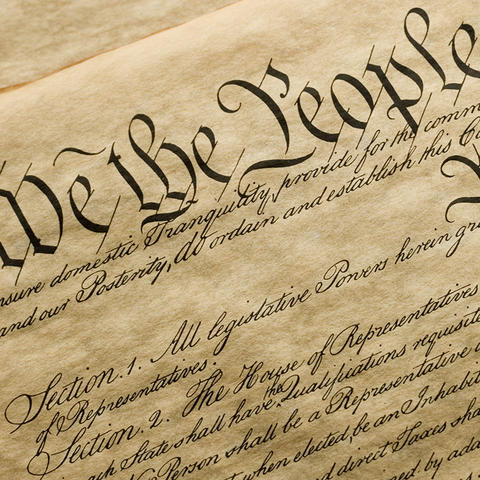 We the People
nsure domestic Tranquility, provide for the comm
and our Posterity, do ordain and establish this Co
Section. 1. All legislative Powers herein gra
of Representatives.
Section. 2. The House of Representatives
ach State shall have the Qualifications requisite
No Person shall be a Representative
when elected, be an Inhabit
and direct Taxes sha
by add